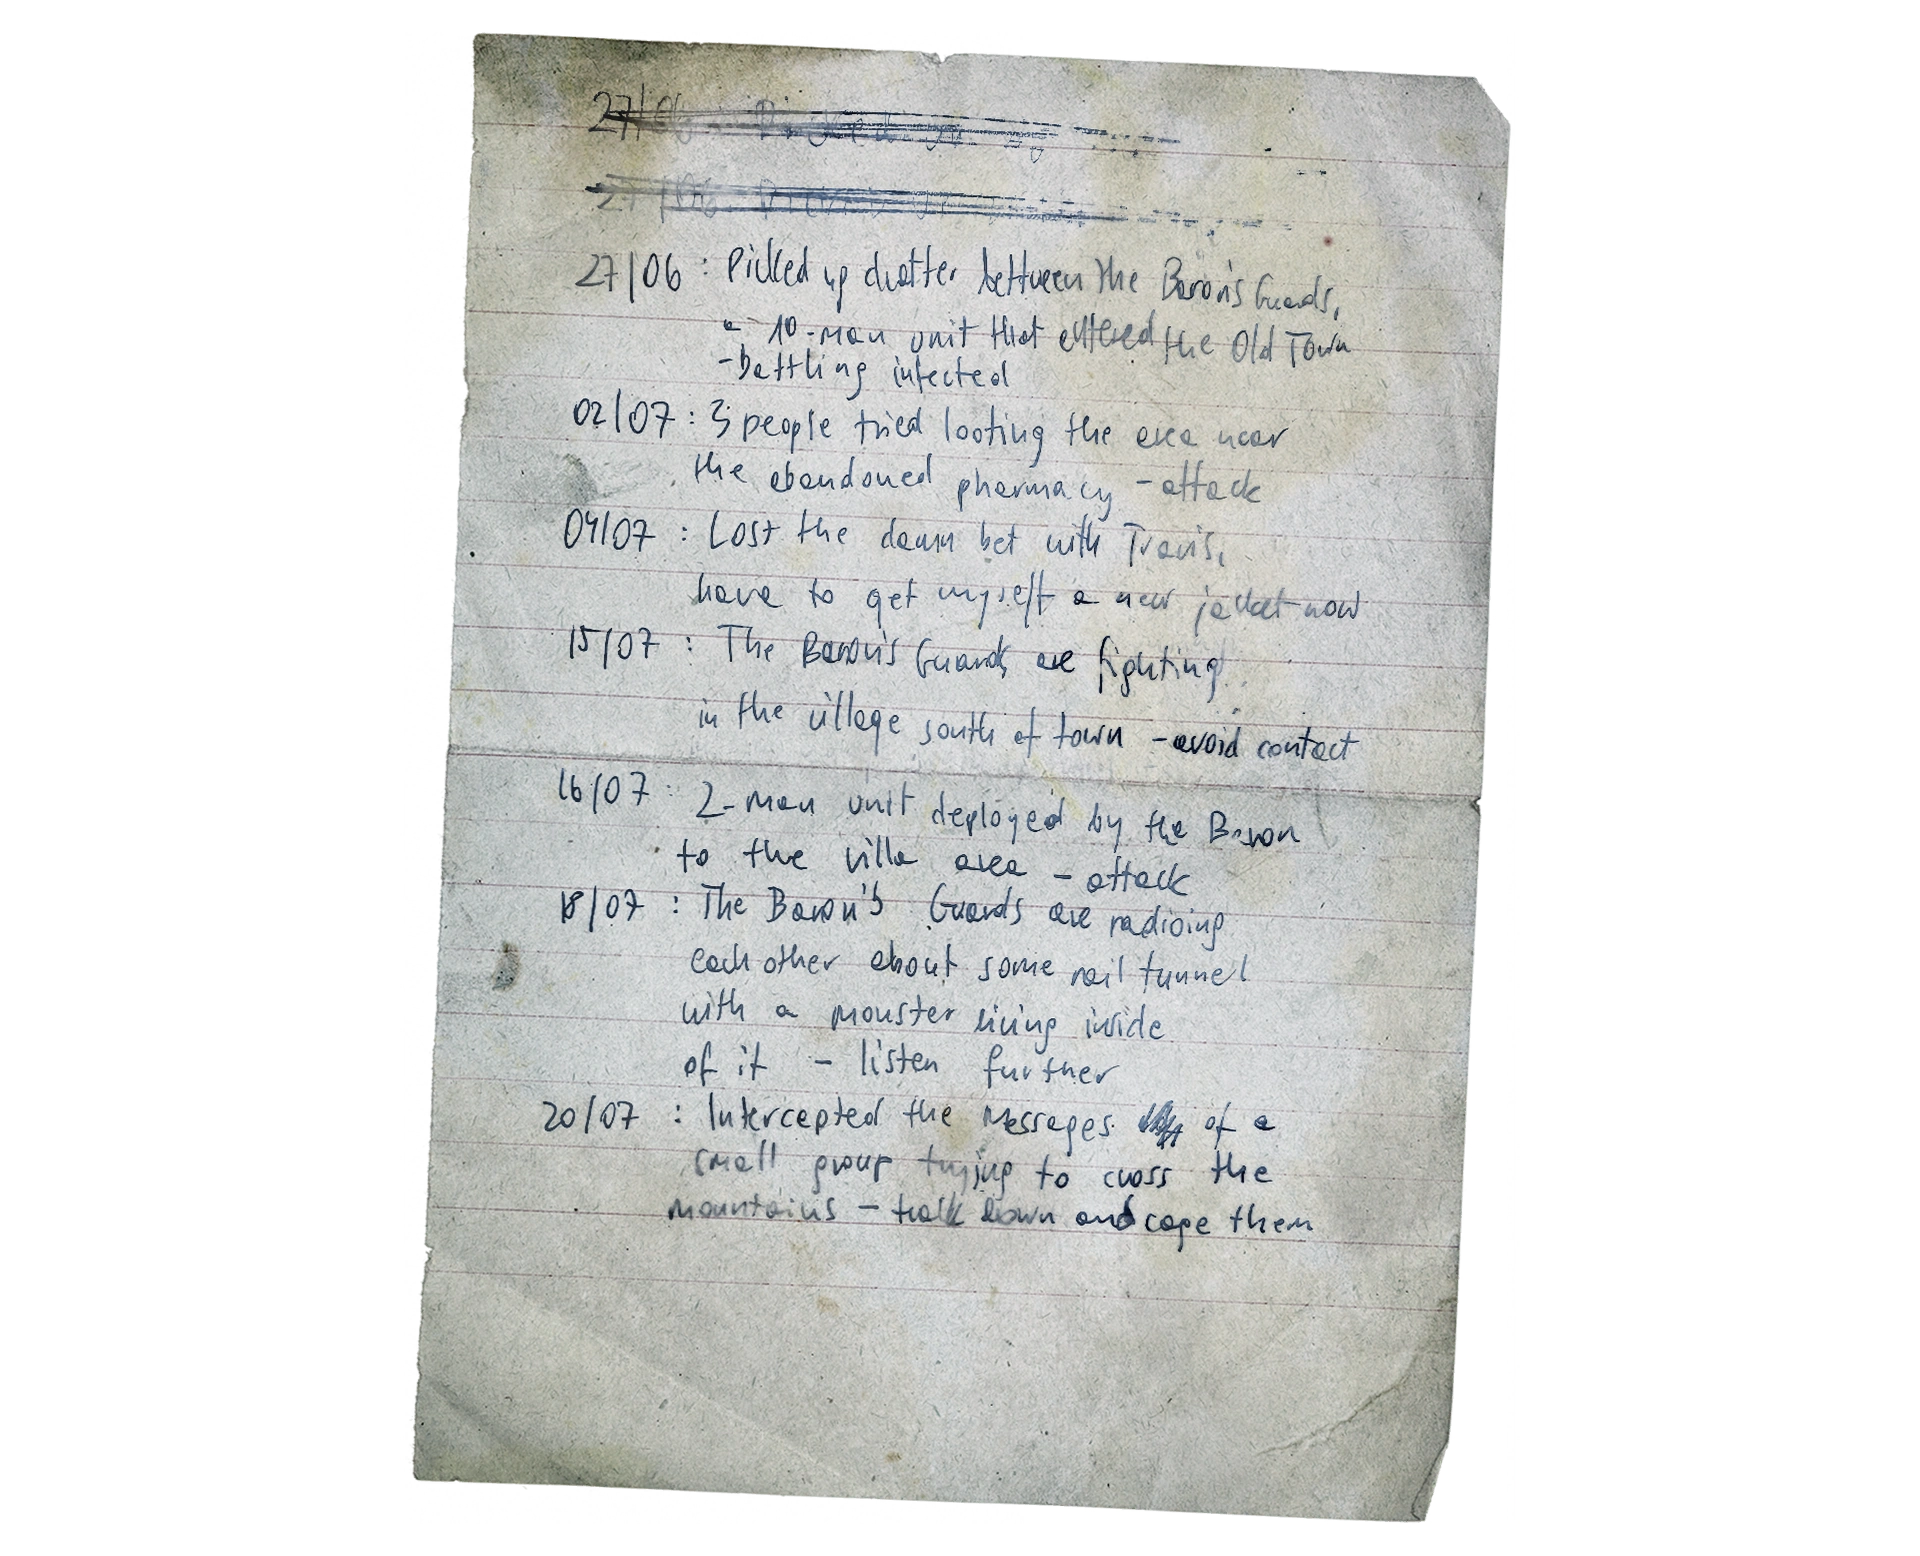 27/06
27/06
27/06 : Picked up chatter bettween the Baron's Guards,
a 10-man unit that entered the Old Town
-battling infected
02/07 : 3 people tried looting the area near
the abandoned pharmacy - attack
04/07 : Lost the damn bet with Travis,
have to get myself a new jacket now
15/07 : The Baron's Guards are fighting
in the village south of town - avoid contact
16/07 : 2-man unit deployed by the Baron
to the villa area - attack
18/07 : The Baron's Guards are radioing
each other about some rail tunnel
with a monster living inside
of it - listen further
20/07 : Intercepted the messages of a
small group trying to cross the
mountains - down and them